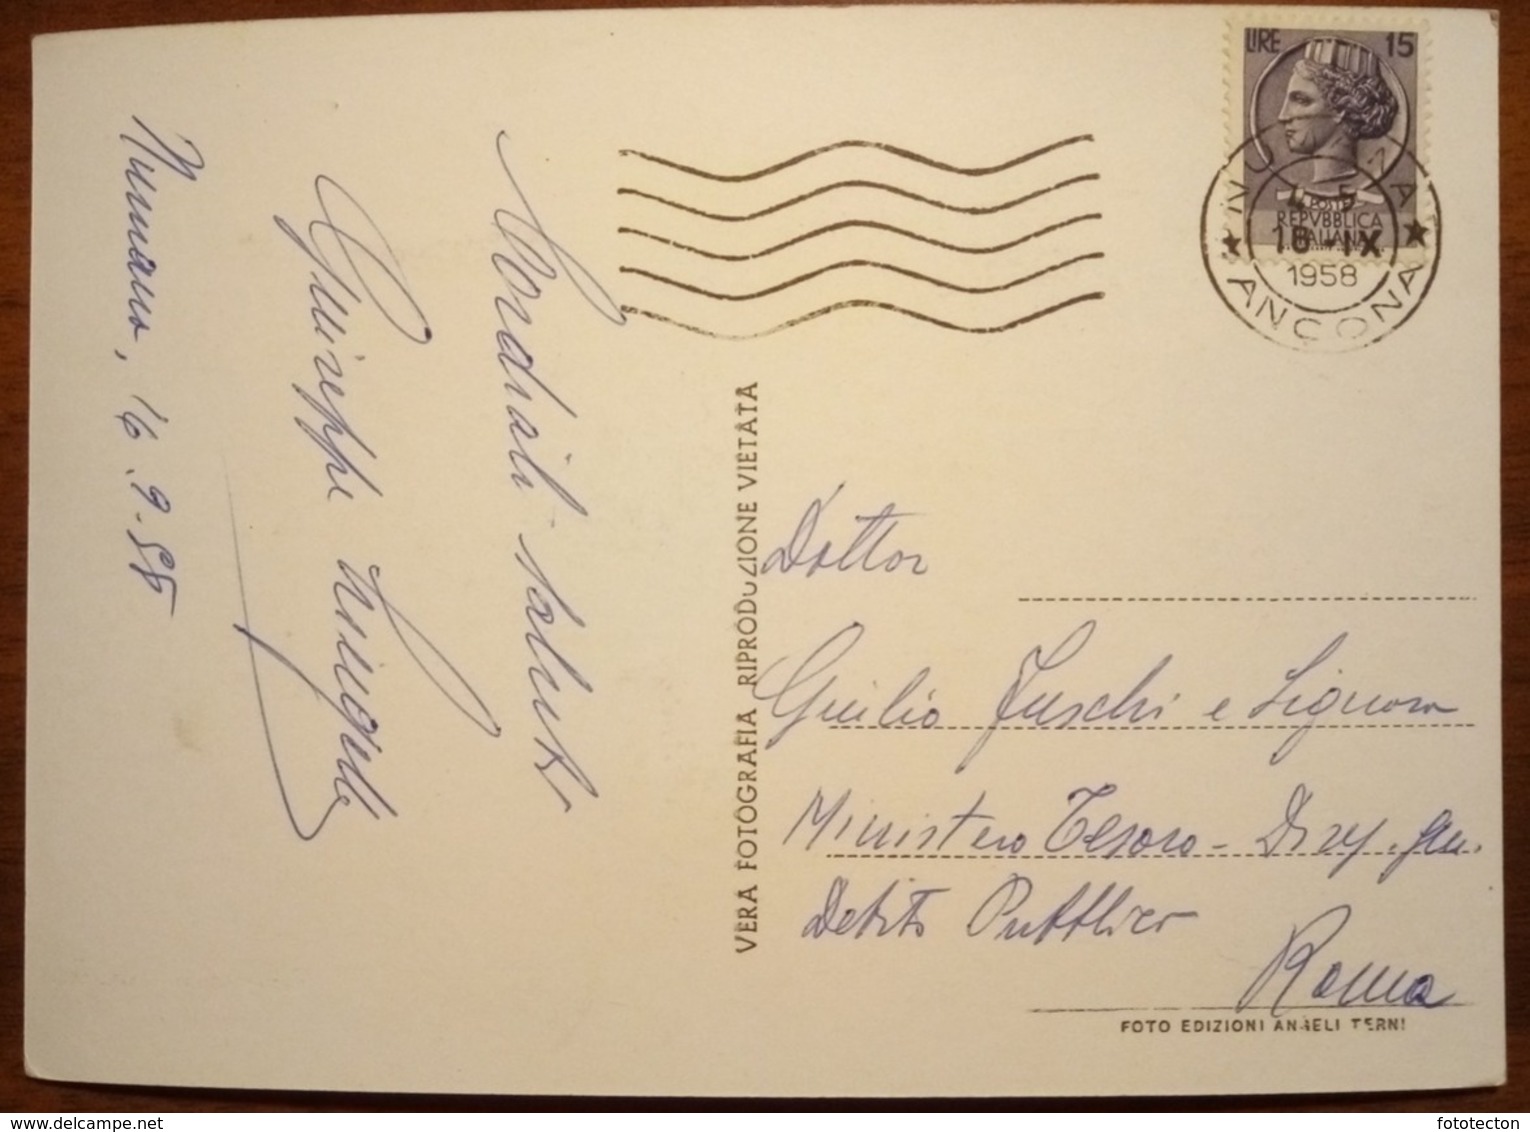 Numana, 16.9.58
Giuseppe
Cordiali saluti
VERA FOTOGRAFIA RIPRODUZIONE VIETATA
LIRE 15
POSTE
REPVBBLICA
ITALIANA
ANCONA ★ ANCONA ★
18 · IX
1958
Dottor
Giulio Fuschi e Signora
Ministero Tesoro - Dir. Gen.
Debito Pubblico
Roma
FOTO EDIZIONI ANGELI TERNI
www.delcampe.net
fototecton